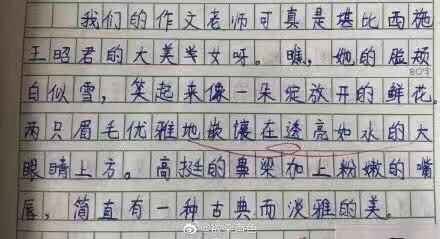 我们的作文老师可真是堪比西施
王昭君的大美女呀。瞧，她的脸颊
80字
白似雪，笑起来像一朵绽放开的鲜花。
两只眉毛优雅地嵌镶在透亮如水的大
眼睛上方。高挺的鼻梁加上粉嫩的嘴
唇，简直有一种古典而淡雅的美。